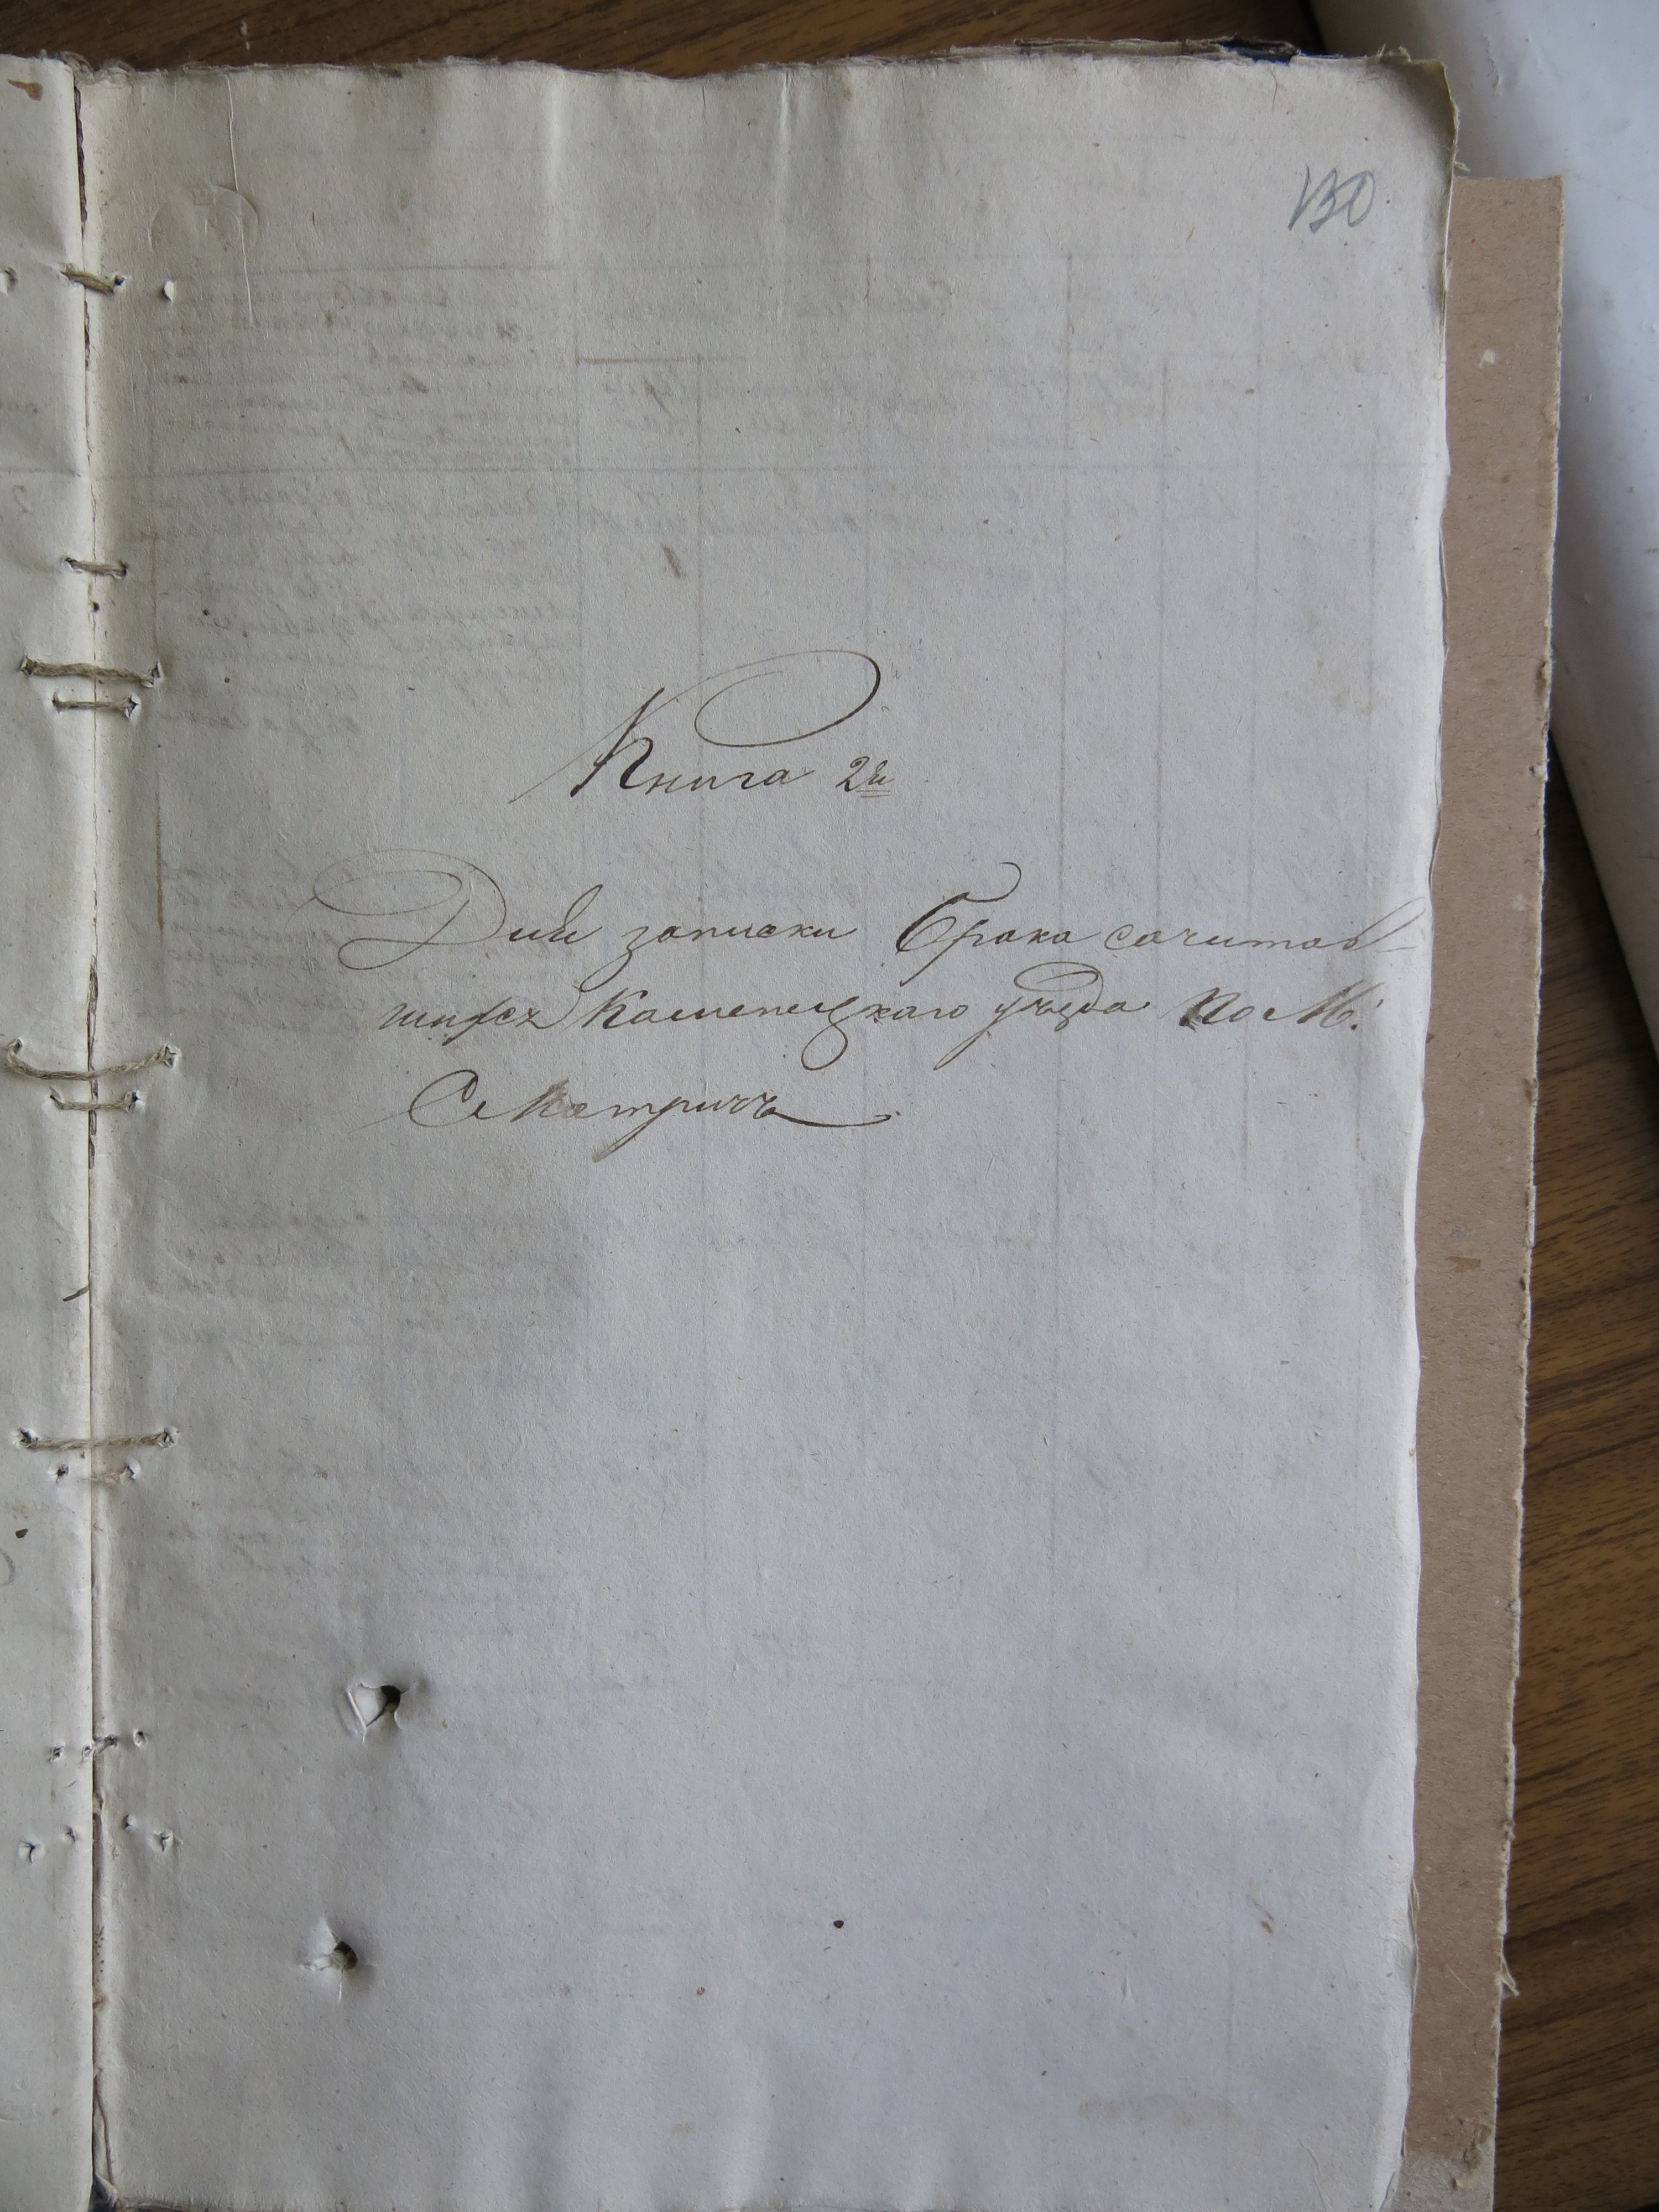 130
Книга 2й
Для записки Брака сачитав
шихся Каменецкаго уѣзда По М:
Смотричъ